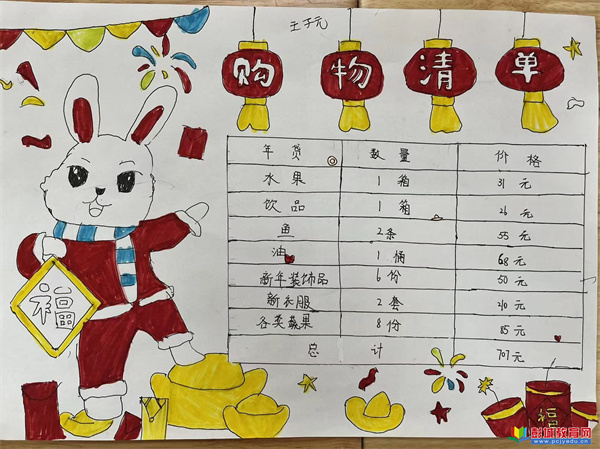 王子元
购物清单
年货 数量 价格
水果 1箱 31元
饮品 1箱 26元
鱼 2条 55元
油 1桶 68元
新年装饰品 6份 50元
新衣服 2套 210元
各类蔬果 8份 85元
总计 707元
福
福
彭城教育网